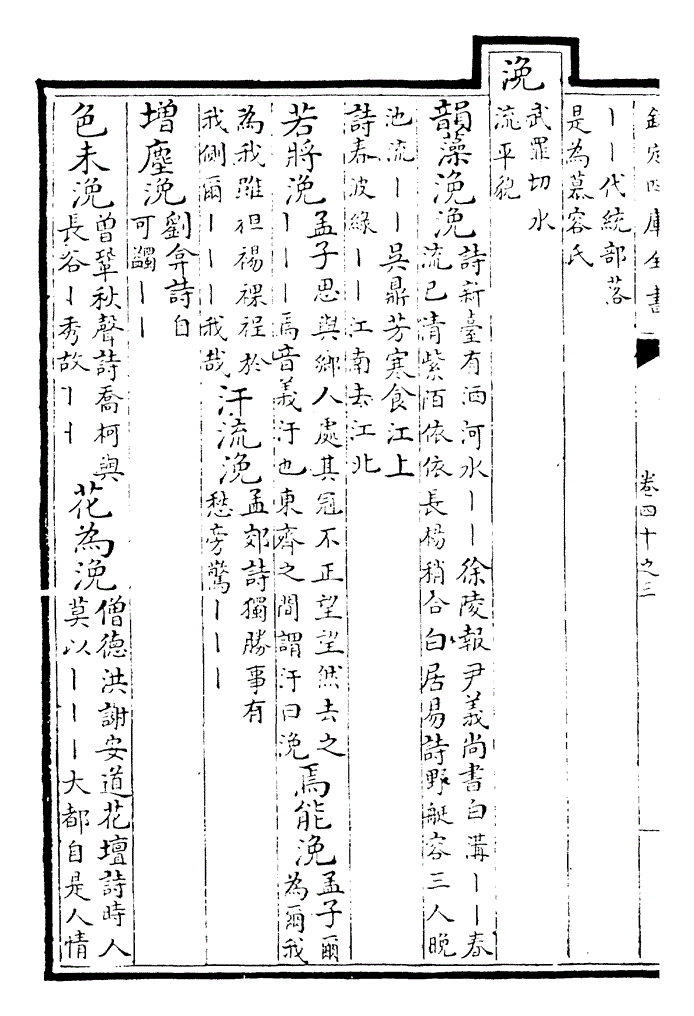 欽定四庫全書
卷四十之三
丨丨代統部落
是為慕容氏
浼
武罪切水
流平貌
韻藻浼浼
詩新臺有洒河水丨丨徐陵報尹義尚書白溝丨丨春
流已清紫陌依依長楊稍合白居易詩野艇容三人晚
池流丨丨吳鼎芳寒食江上
詩春波綠丨丨江南去江北
若將浼
孟子思與鄉人處其冠不正望望然去之
丨丨丨焉音義汙也東齊之間謂汙曰浼
焉能浼
孟子爾
為爾我
為我雖袒裼裸裎於
我側爾丨丨丨我哉
汗流浼
孟郊詩獨勝事有
愁旁驚丨丨丨
增塵浼
劉弇詩自
可蠲丨丨
色未浼
曾鞏秋聲詩喬柯與
長谷丨秀故丨丨
花為浼
僧德洪謝安道花壇詩時人
莫以丨丨丨大都自是人情